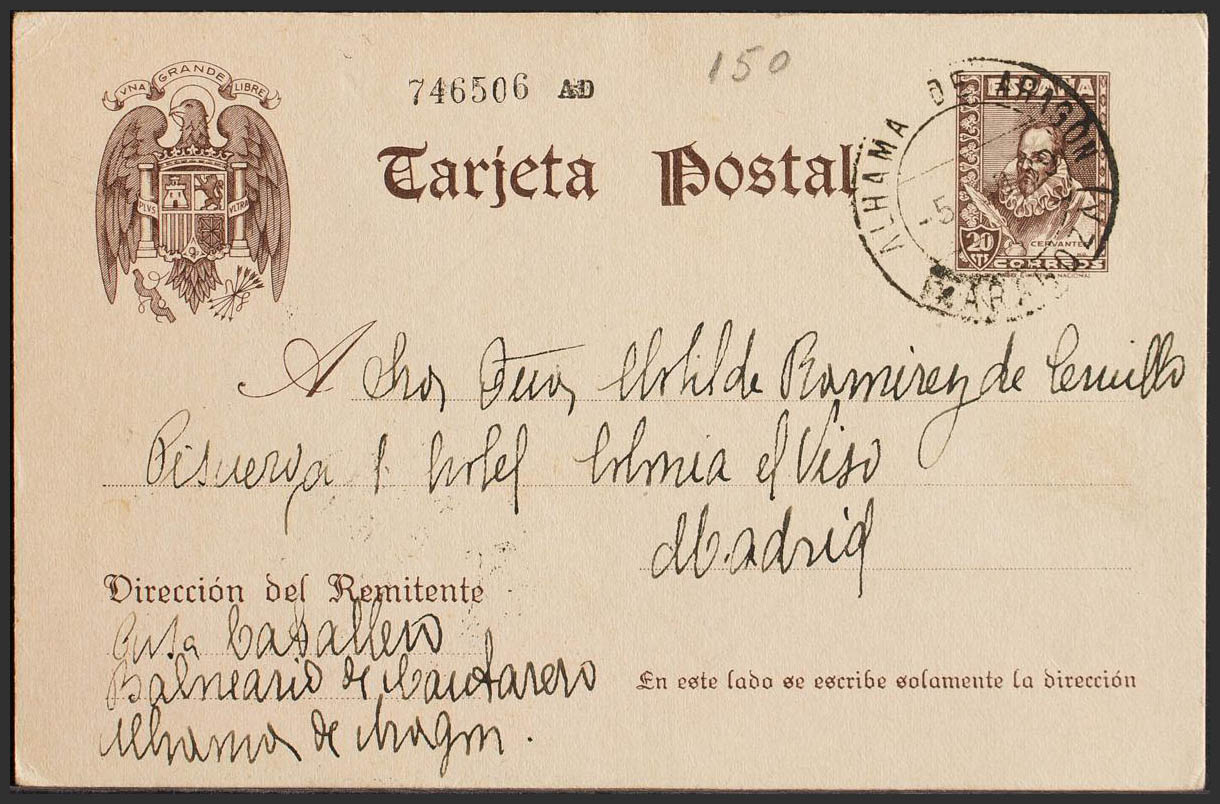 VNA GRANDE LIBRE
746506 AD
150
Tarjeta Postal
PLVS VLTRA
ALHAMA DE ARAGON
-5
ESPAÑA
20
CERVANTES
CORREOS
A Sra Dña Clotilde Ramirez de
Pisuerga 1 hotel Colonia el Viso
Madrid
Dirección del Remitente
Caballero
Balneario de Cantarero
Alhama de Aragon.
En este lado se escribe solamente la dirección